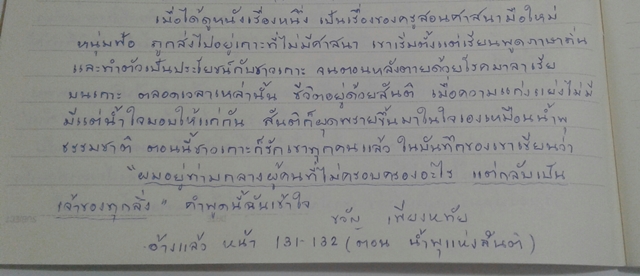 เมื่อได้ดูหนังเรื่องหนึ่ง เป็นเรื่องของครูสอนศาสนามือใหม่
หนุ่มฟ้อ ถูกส่งไปอยู่เกาะที่ไม่มีศาสนา เขาเริ่มตั้งแต่เรียนพูดภาษาถิ่น
และทำตัวเป็นประโยชน์กับชาวเกาะ จนตอนหลังตายด้วยโรคมาลาเรีย
บนเกาะ ตลอดเวลาเหล่านั้น ชีวิตอยู่ด้วยสันติ เมื่อความแก่งแย่งไม่มี
มีแต่น้ำใจมอบให้แก่กัน สันติก็ผุดพรายขึ้นมาในใจเองเหมือนน้ำพุ
ธรรมชาติ ตอนนี้ชาวเกาะก็รักเขาทุกคนแล้ว ในบันทึกของเขาเขียนว่า
"ผมอยู่ท่ามกลางผู้คนที่ไม่ครอบครองอะไร แต่กลับเป็น
เจ้าของทุกสิ่ง" คำพูดนี้ฉันเข้าใจ
ขวัญ เพียงหทัย
อ้างแล้ว หน้า 131-132 (ตอน น้ำพุแห่งสันติ)